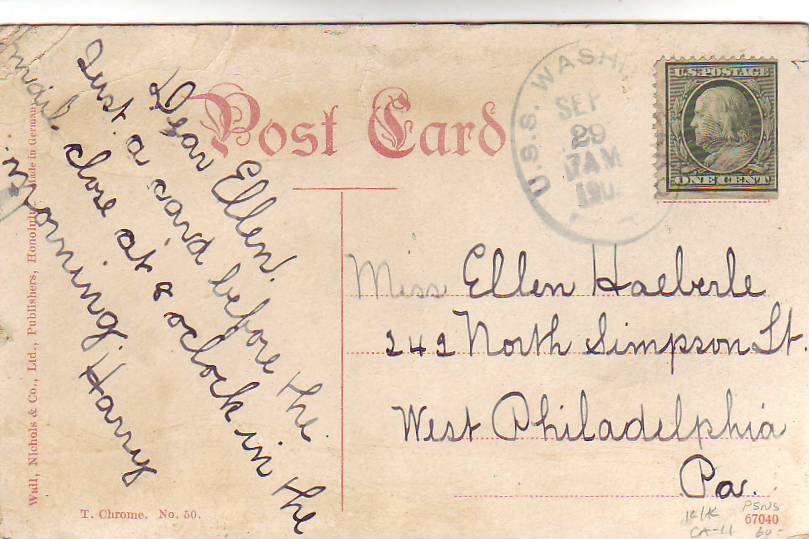 Post Card
U.S.S. WASHI
SEP
29
7 AM
190
U.S. POSTAGE
ONE CENT
Dear Ellen.
Just a card before the
mail close at 8 oclock in the
morning. Harry
Miss Ellen Haeberle
242 North Simpson St.
West Philadelphia
Pa.
Wall, Nichols & Co., Ltd., Publishers, Honolulu. Made in Germany
T. Chrome. No. 50.
67040
PSNS
CA-11
60-